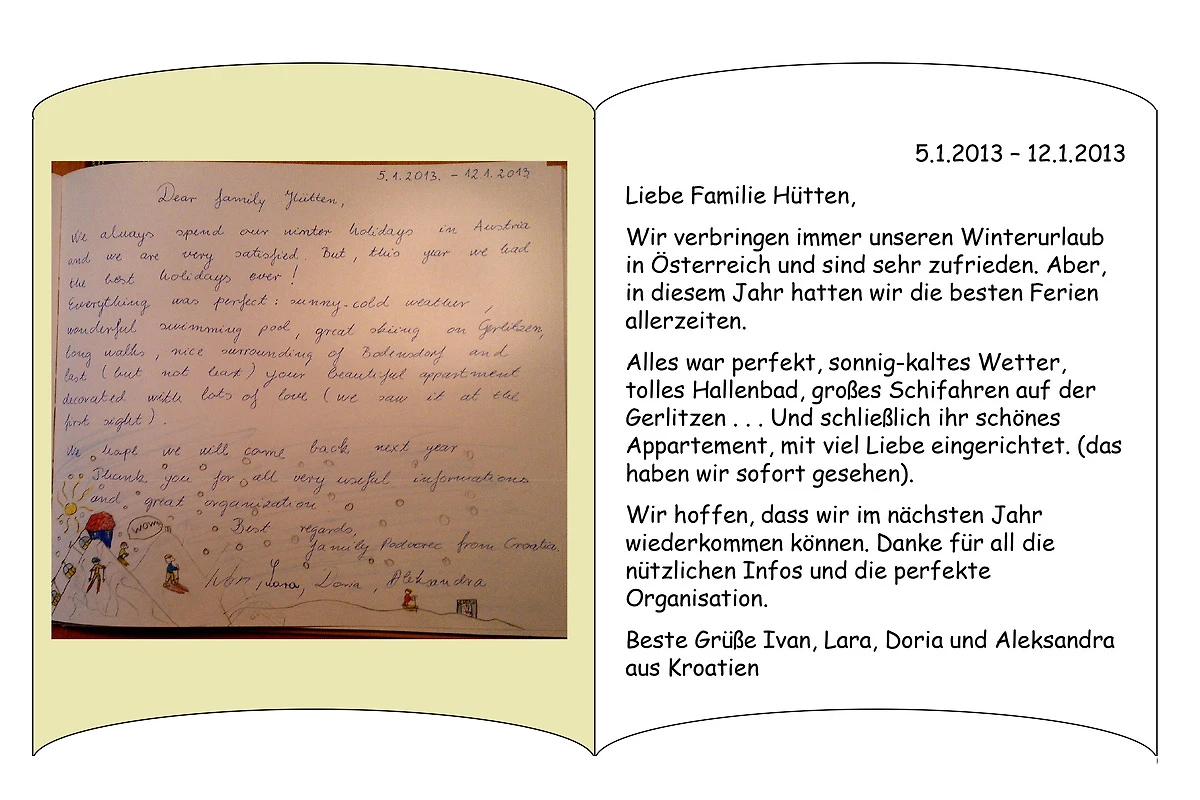 5.1.2013. – 12.1.2013
Dear family Hütten,
We always spend our winter holidays in Austria
and we are very satisfied. But, this year we had
the best holidays ever!
Everything was perfect: sunny-cold weather,
wonderful swimming pool, great skiing on Gerlitzen,
long walks, nice surrounding of Bodensdorf and
last (but not least) your beautiful appartment
decorated with lots of love (we saw it at the
first sight).
We hope we will come back next year
Thank you for all very useful informations
and great organization
WOW
Best regards,
family Podvorec from Croatia.
Ivan, Lara, Doria, Aleksandra
5.1.2013 – 12.1.2013
Liebe Familie Hütten,
Wir verbringen immer unseren Winterurlaub
in Österreich und sind sehr zufrieden. Aber,
in diesem Jahr hatten wir die besten Ferien
allerzeiten.
Alles war perfekt, sonnig-kaltes Wetter,
tolles Hallenbad, großes Schifahren auf der
Gerlitzen . . . Und schließlich ihr schönes
Appartement, mit viel Liebe eingerichtet. (das
haben wir sofort gesehen).
Wir hoffen, dass wir im nächsten Jahr
wiederkommen können. Danke für all die
nützlichen Infos und die perfekte
Organisation.
Beste Grüße Ivan, Lara, Doria und Aleksandra
aus Kroatien